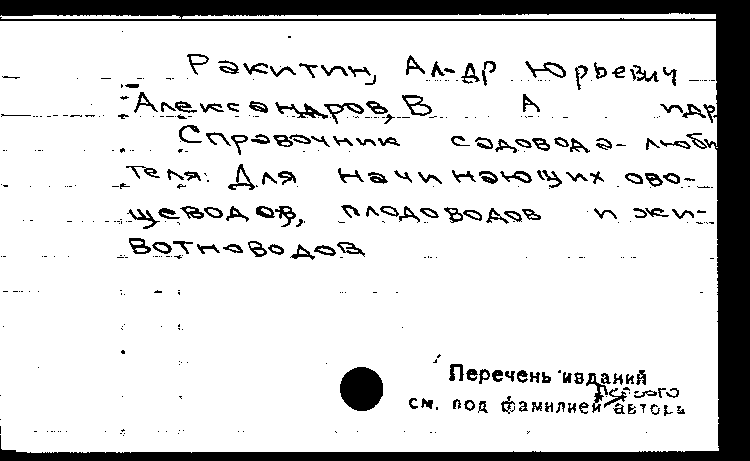 Ракитин, Ал-др Юрьевич
Александров, В А и др
Справочник садовода-люби
теля: Для начинающих ово-
щеводов, плодоводов и жи-
вотноводов
Перечень изданий
первого
см. под фамилией автора